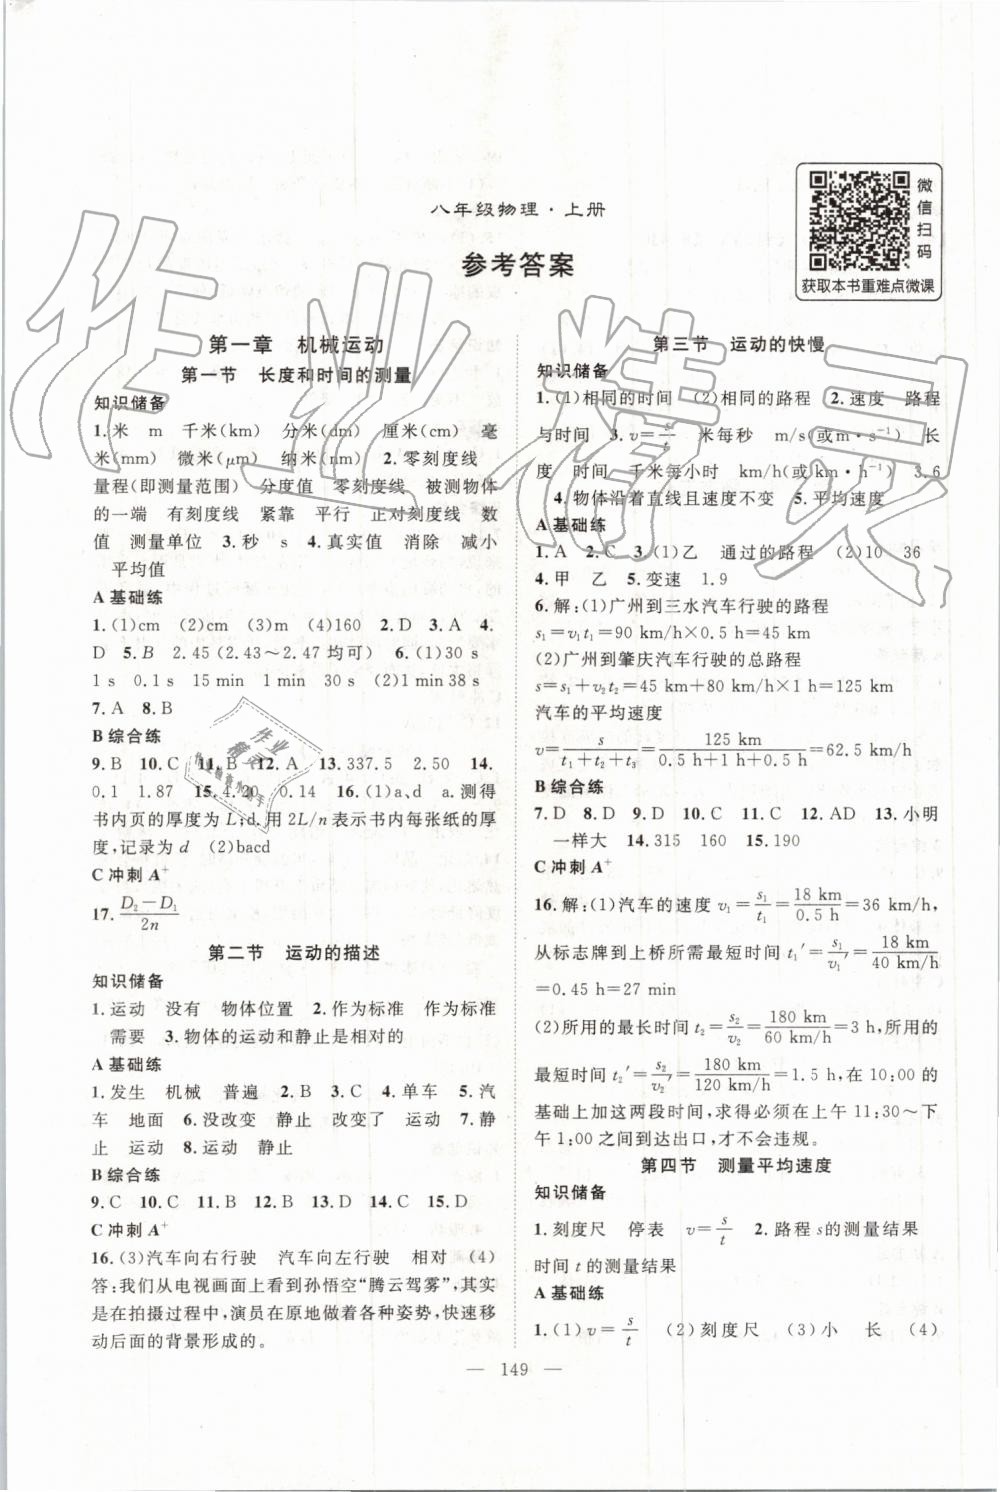 八年级物理·上册
参考答案
微信扫码
获取本书重难点微课
第一章 机械运动
第一节 长度和时间的测量
知识储备
1.米 m 千米(km) 分米(dm) 厘米(cm) 毫
米(mm) 微米(μm) 纳米(nm) 2.零刻度线
量程(即测量范围) 分度值 零刻度线 被测物体
的一端 有刻度线 紧靠 平行 正对刻度线 数
值 测量单位 3.秒 s 4.真实值 消除 减小
平均值
A 基础练
1.(1)cm (2)cm (3)m (4)160 2.D 3.A 4.
D 5.B 2.45(2.43～2.47均可) 6.(1)30 s
1 s 0.1 s 15 min 1 min 30 s (2)1 min38 s
7.A 8.B
B 综合练
9.B 10.C 11.B 12.A 13.337.5 2.50 14.
0.1 1.87 15.4.20 0.14 16.(1)a、d a.测得
书内页的厚度为L;d.用2L/n表示书内每张纸的厚
度,记录为d (2)bacd
C 冲刺 A⁺
17. (D₂-D₁)/2n
第二节 运动的描述
知识储备
1.运动 没有 物体位置 2.作为标准 作为标准
需要 3.物体的运动和静止是相对的
A 基础练
1.发生 机械 普遍 2.B 3.C 4.单车 5.汽
车 地面 6.没改变 静止 改变了 运动 7.静
止 运动 静止 8.运动 静止
B 综合练
9.C 10.C 11.B 12.B 13.C 14.C 15.D
C 冲刺 A⁺
16.(3)汽车向右行驶 汽车向左行驶 相对 (4)
答:我们从电视画面上看到孙悟空“腾云驾雾”,其实
是在拍摄过程中,演员在原地做着各种姿势,快速移
动后面的背景形成的。
第三节 运动的快慢
知识储备
1.(1)相同的时间 (2)相同的路程 2.速度 路程
与时间 3.v=s/t 米每秒 m/s(或m·s⁻¹) 长
度 时间 千米每小时 km/h(或km·h⁻¹) 3.6
4.物体沿着直线且速度不变 5.平均速度
A 基础练
1.A 2.C 3.(1)乙 通过的路程 (2)10 36
4.甲 乙 5.变速 1.9
6.解:(1)广州到三水汽车行驶的路程
s₁=v₁t₁=90 km/h×0.5 h=45 km
(2)广州到肇庆汽车行驶的总路程
s=s₁+v₂t₂=45 km+80 km/h×1 h=125 km
汽车的平均速度
v=s/(t₁+t₂+t₃)=125 km/(0.5 h+1 h+0.5 h)=62.5 km/h
B 综合练
7.D 8.D 9.D 10.C 11.C 12.AD 13.小明
一样大 14.315 160 15.190
C 冲刺 A⁺
16.解:(1)汽车的速度 v₁=s₁/t₁=18 km/0.5 h=36 km/h,
从标志牌到上桥所需最短时间 t₁′=s₁/v₁′=18 km/40 km/h
=0.45 h=27 min
(2)所用的最长时间 t₂=s₂/v₂=180 km/60 km/h=3 h,所用的
最短时间 t₂′=s₂/v₂′=180 km/120 km/h=1.5 h,在10:00的
基础上加这两段时间,求得必须在上午11:30～下
午1:00之间到达出口,才不会违规。
第四节 测量平均速度
知识储备
1.刻度尺 停表 v=s/t 2.路程s的测量结果
时间t的测量结果
A 基础练
1.(1)v=s/t (2)刻度尺 (3)小 长 (4)
— 149 —
作业精灵